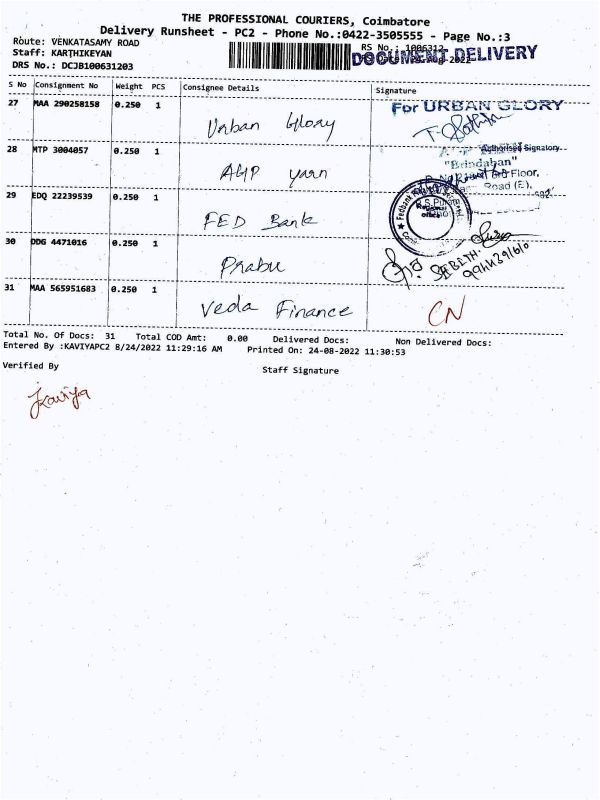 THE PROFESSIONAL COURIERS, Coimbatore
Delivery Runsheet - PC2 - Phone No.:0422-3505555 - Page No.:3
Route: VENKATASAMY ROAD
RS No.: 1006312
Staff: KARTHIKEYAN
DOCUMENT DELIVERY
DRS No.: DCJB100631203
S No Consignment No Weight PCS Consignee Details Signature
27 MAA 290258158 0.250 1 Urban Glory For URBAN GLORY
Authorised Signatory
28 MTP 3004057 0.250 1 AGP yarn "Brindaban"
Floor,
Road (E),
29 EDQ 22239539 0.250 1 FED Bank
30 DDG 4471016 0.250 1 Prabu
31 MAA 565951683 0.250 1 Veda Finance CN
Total No. Of Docs: 31 Total COD Amt: 0.00 Delivered Docs: Non Delivered Docs:
Entered By :KAVIYAPC2 8/24/2022 11:29:16 AM Printed On: 24-08-2022 11:30:53
Verified By Staff Signature
Kaviya